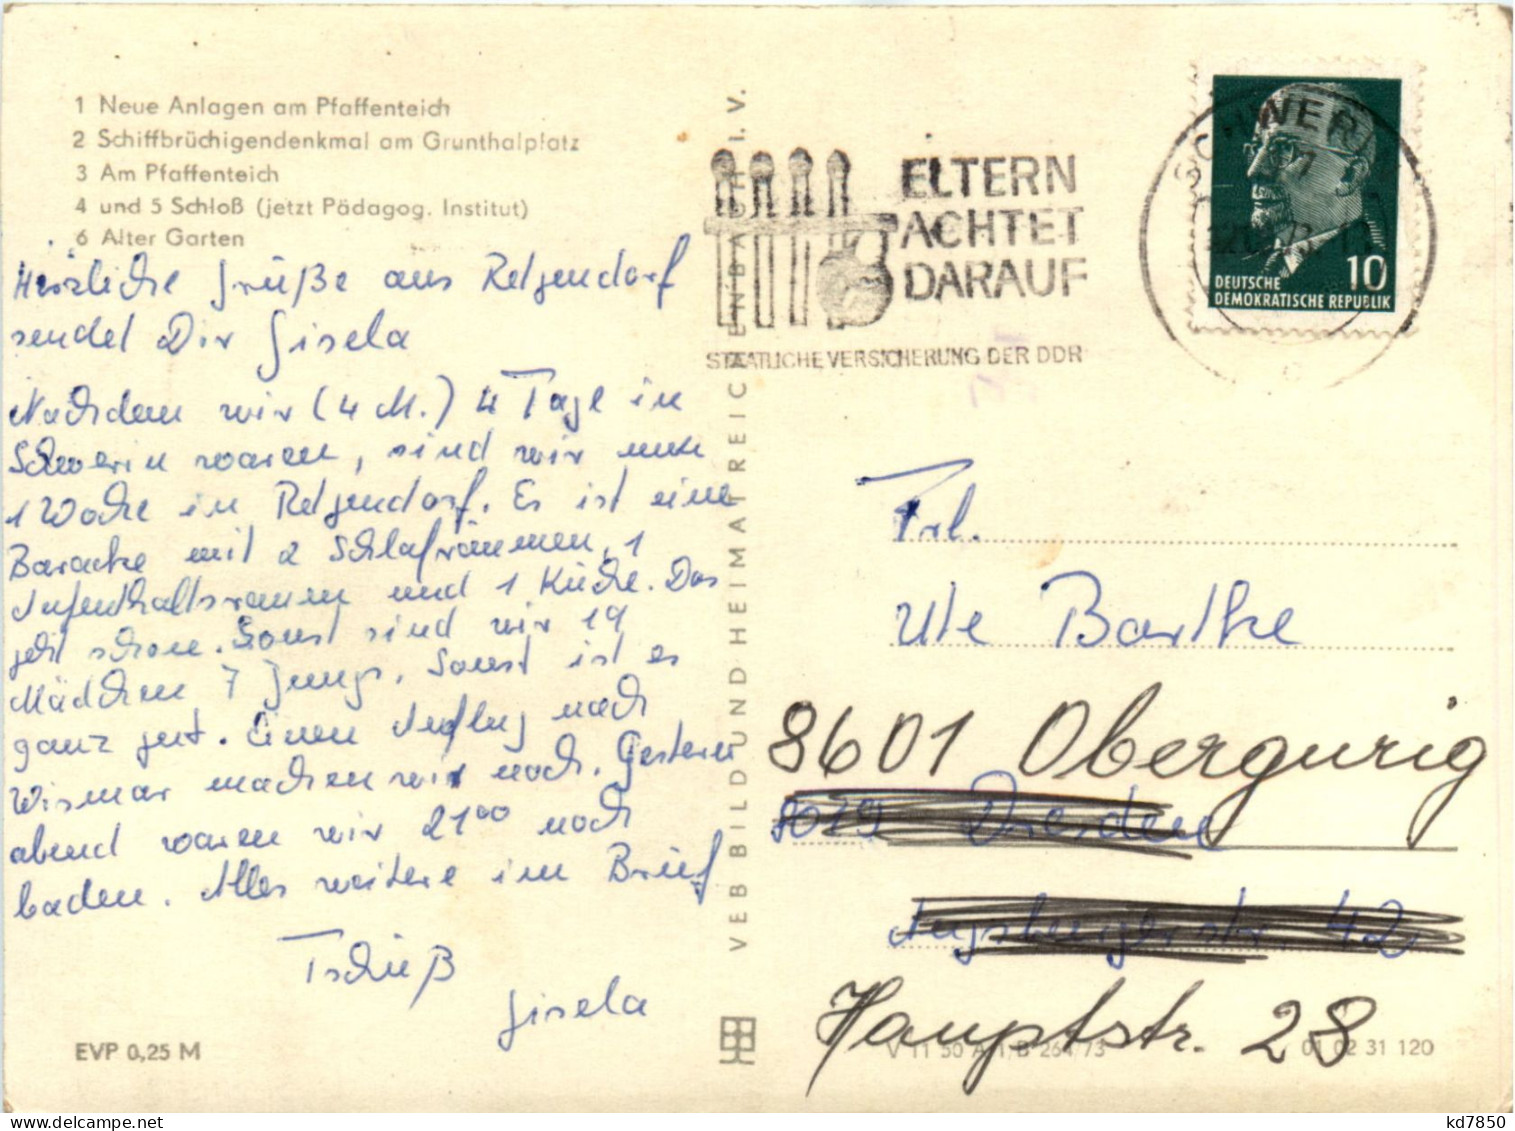 1 Neue Anlagen am Pfaffenteich
2 Schiffbrüchigendenkmal am Grunthalplatz
3 Am Pfaffenteich
4 und 5 Schloß (jetzt Pädagog. Institut)
6 Alter Garten
Herzliche Grüße aus Retgendorf
sendet Dir Gisela
Nachdem wir (4 M.) 4 Tage in
Schwerin waren, sind wir nun
1 Woche in Retgendorf. Es ist eine
Baracke mit 2 Schlafräumen, 1
Aufenthaltsraum und 1 Küche. Das
geht schon. Sonst sind wir 19
Mädchen 7 Jungs. Sonst ist es
ganz gut. Einen Ausflug nach
Wismar machen wir noch. Gestern
abend waren wir 21⁰⁰ noch
baden. Alles weitere im Brief
Tschüß
Gisela
EVP 0,25 M
VEB BILD UND HEIMAT REICHENBACH I. V.
ELTERN
ACHTET
DARAUF
STAATLICHE VERSICHERUNG DER DDR
SCHWERIN
10
DEUTSCHE
DEMOKRATISCHE REPUBLIK
Frl.
Ute Barthe
8601 Obergurig
8019 Dresden
Augsburgerstr. 42
Hauptstr. 28
V 11 50 A 1/B 264/73
01 02 31 120
kd7850